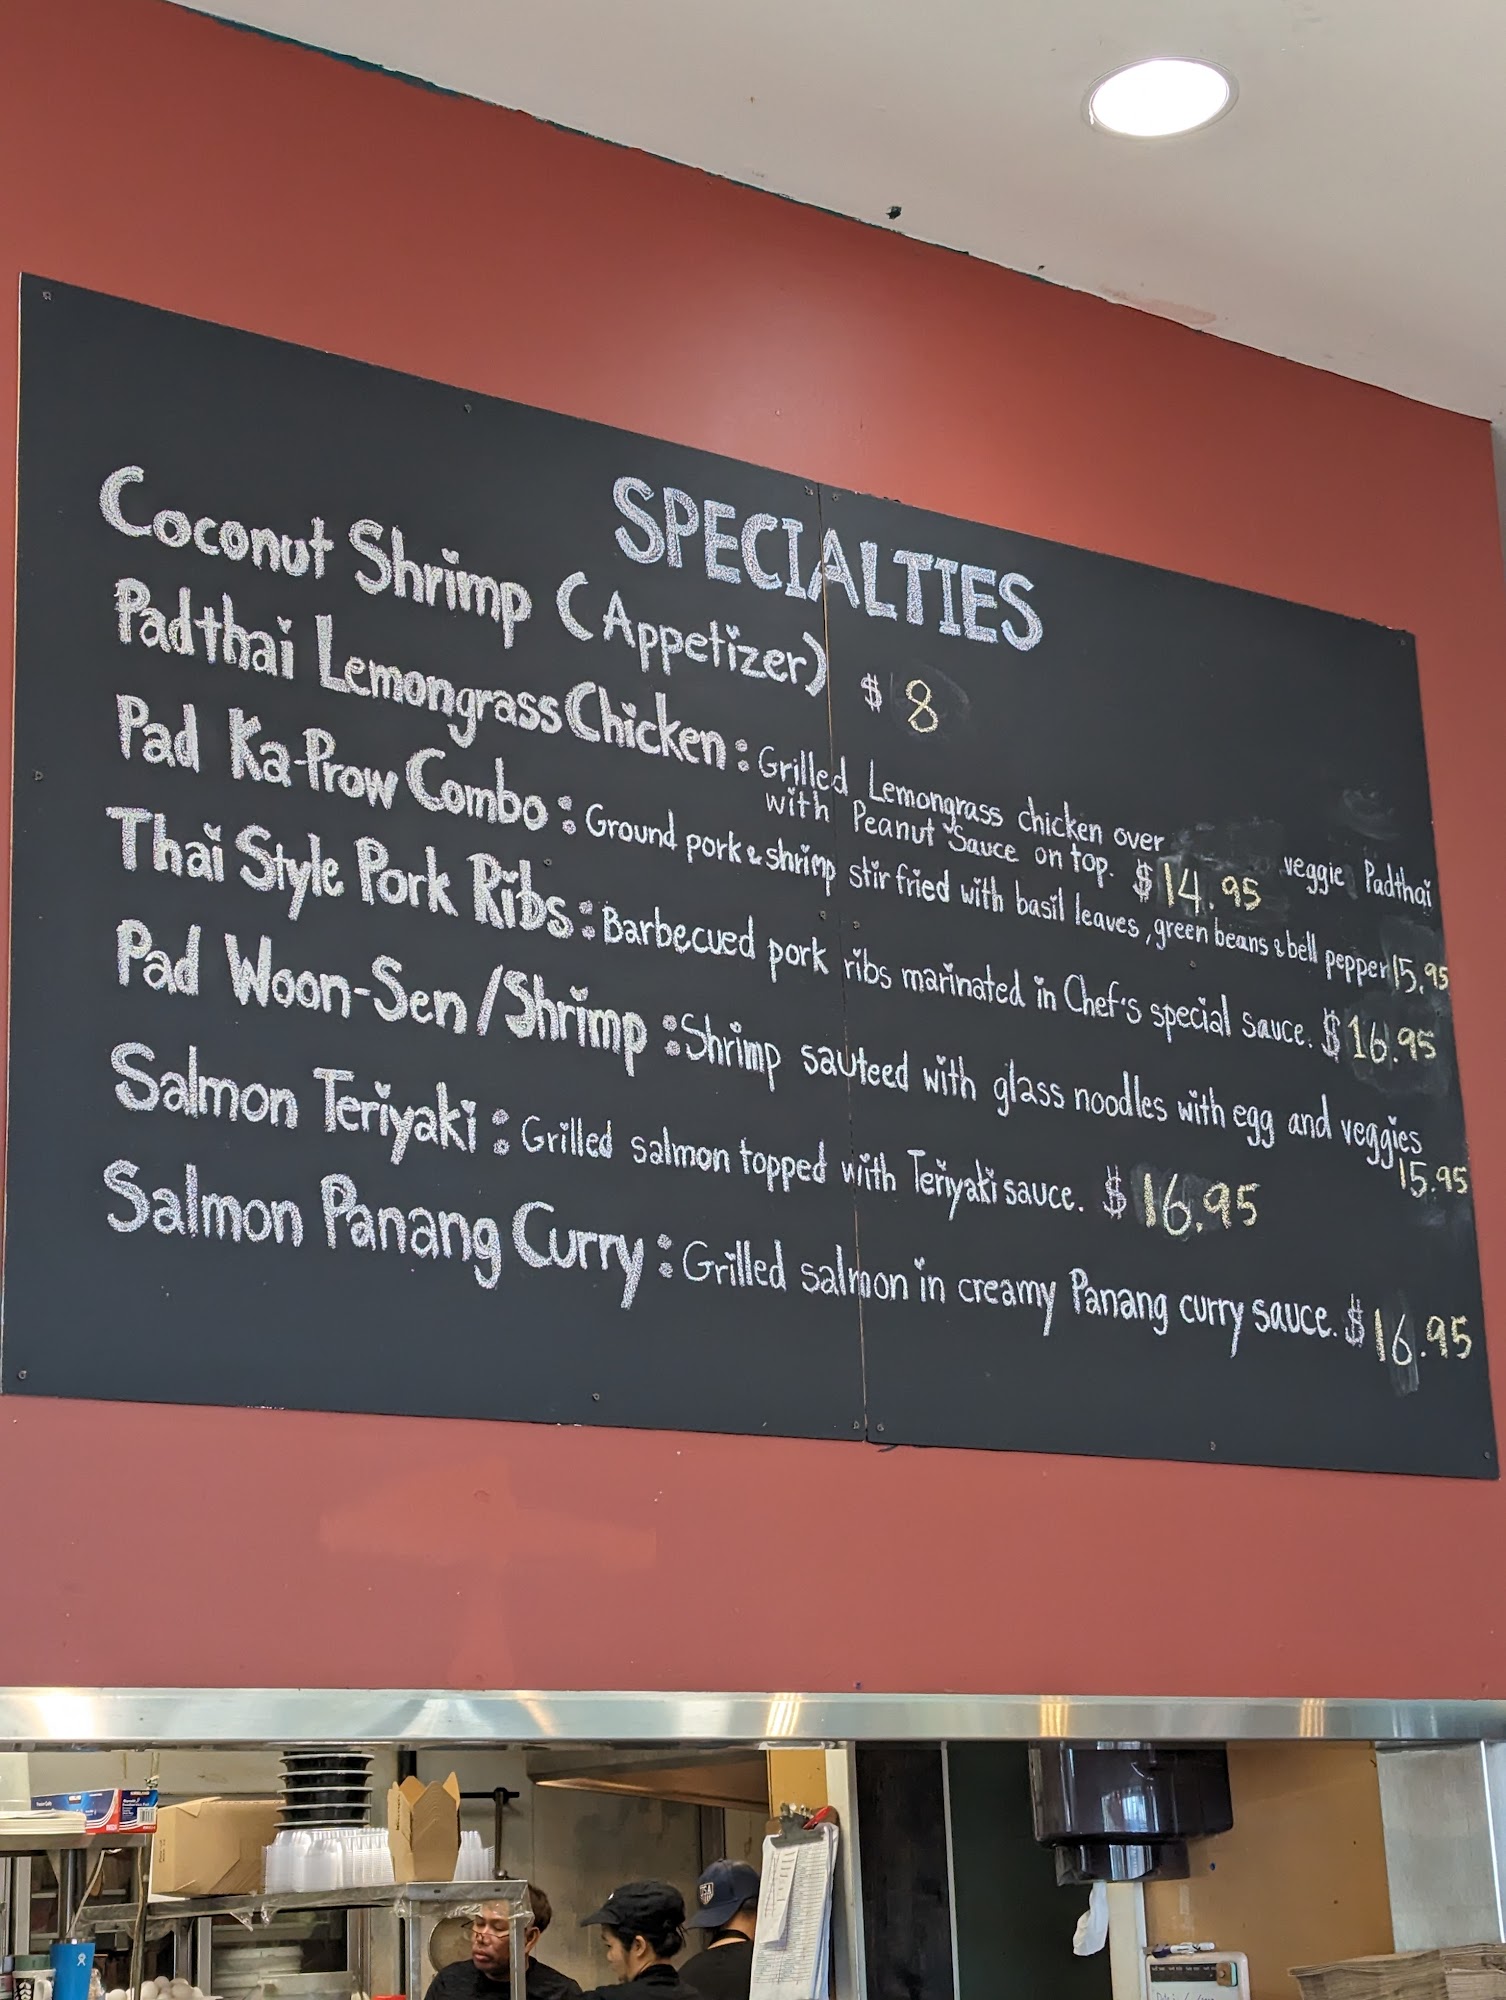 SPECIALTIES
Coconut Shrimp (Appetizer) $ 8
Padthai Lemongrass Chicken : Grilled Lemongrass chicken over veggie Padthai
with Peanut Sauce on top. $ 14.95
Pad Ka-Prow Combo : Ground pork & shrimp stir fried with basil leaves, green beans & bell pepper 15.95
Thai Style Pork Ribs : Barbecued pork ribs marinated in Chef's special sauce. $ 16.95
Pad Woon-Sen / Shrimp : Shrimp sauteed with glass noodles with egg and veggies
15.95
Salmon Teriyaki : Grilled salmon topped with Teriyaki sauce. $ 16.95
Salmon Panang Curry : Grilled salmon in creamy Panang curry sauce. $ 16.95
USA